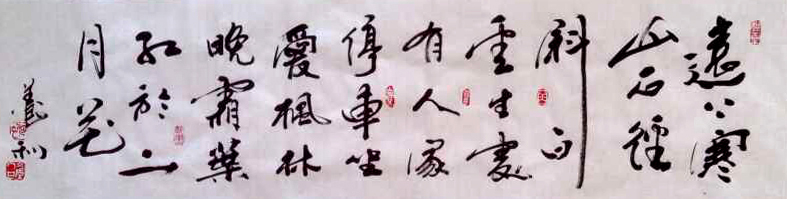 遠上寒
山石徑
斜白
雲生處
有人家
停車坐
愛楓林
晚霜葉
紅於二
月花